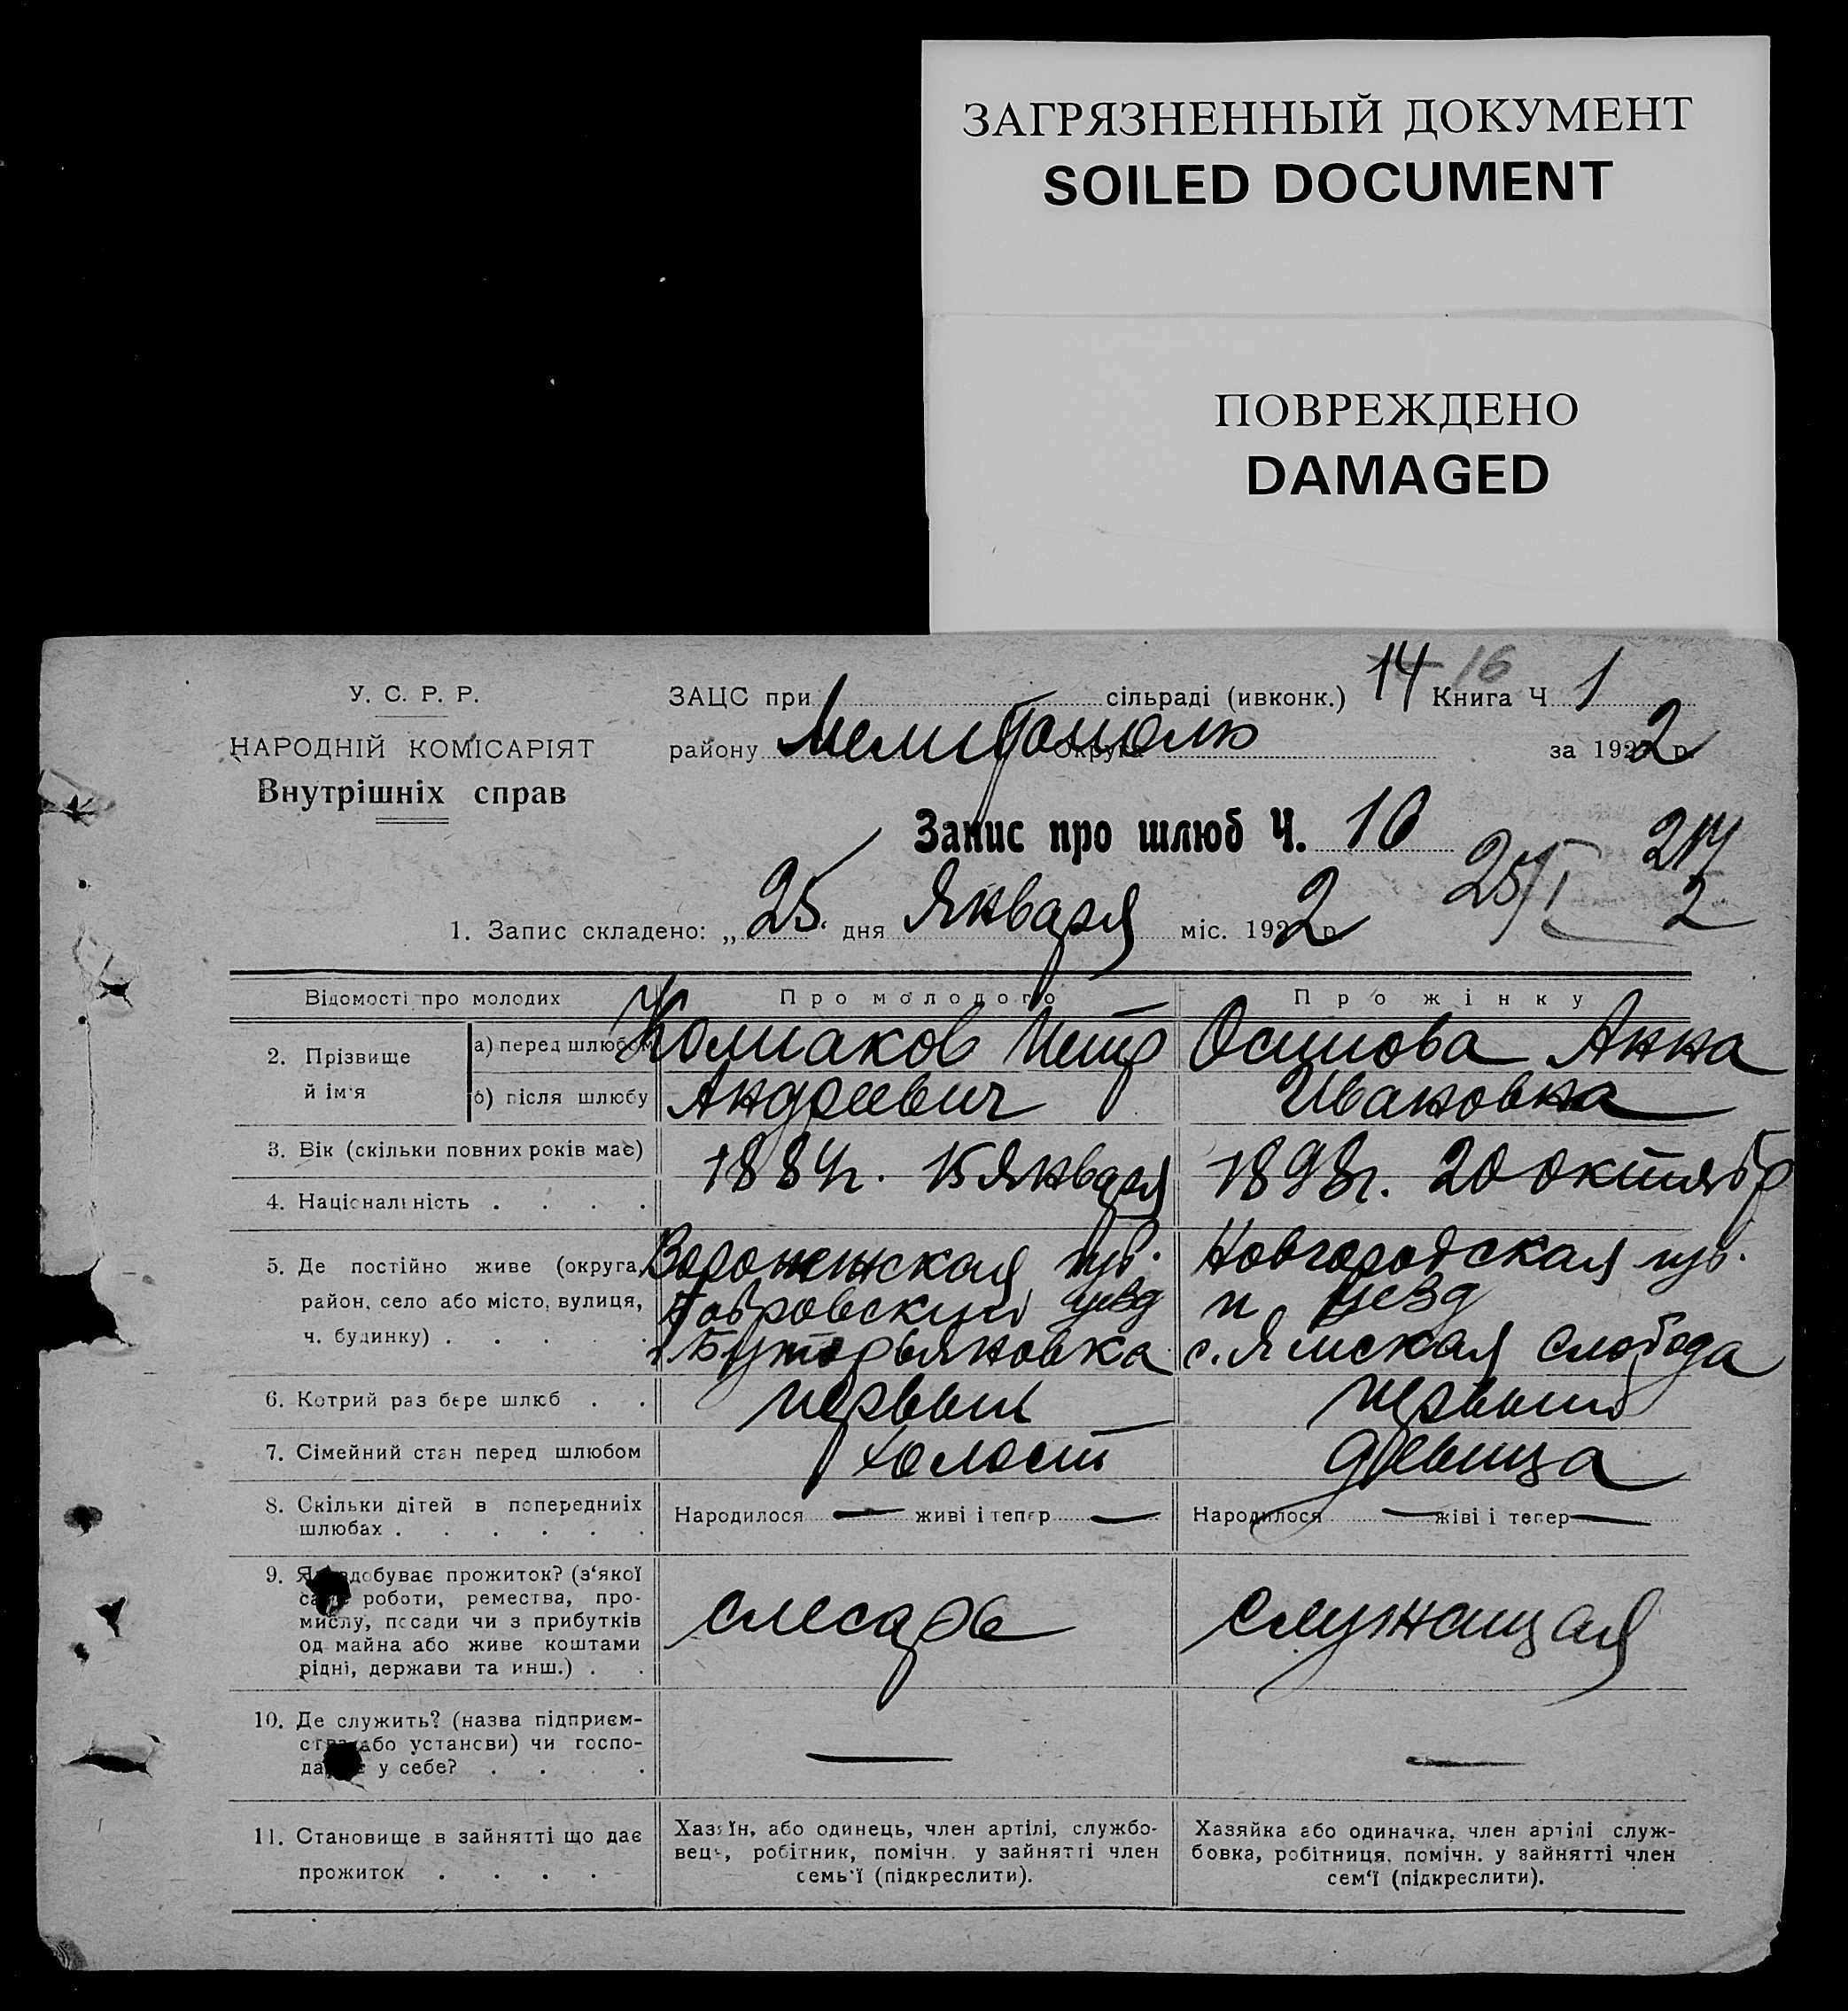 ЗАГРЯЗНЕННЫЙ ДОКУМЕНТ
SOILED DOCUMENT
ПОВРЕЖДЕНО
DAMAGED
У. С. Р. Р.
НАРОДНІЙ КОМІСАРІЯТ
Внутрішніх справ
ЗАЦС при сільраді (ивконк.) 14 16 Книга Ч 1
району Мелитополь округи за 1922 р.
Запис про шлюб Ч. 10
25/I
2
1. Запис складено: „25" дня Января міс. 1922 р.
Відомості про молодих
Про молодого
Про жінку
2. Прізвище й ім'я
а) перед шлюбом
б) після шлюбу
Колпаков Петр
Андреевич
Осипова Анна
Ивановна
3. Вік (скільки повних років має)
1884 г. 15 Января
1898 г. 20 октябр
4. Національність . . . .
5. Де постійно живе (округа,
район, село або місто, вулиця,
ч. будинку) . . . .
Воронежская губ.
Бобровский уезд
Новгородская губ.
н уезд
с. Ямская Слобода
6. Котрий раз бере шлюб . .
первый
первый
7. Сімейний стан перед шлюбом
холост
девица
8. Скільки дітей в попередниіх
шлюбах . . . . . .
Народилося — живі і тепер —
Народилося — жіві і тепер —
9. Як здобуває прожиток? (з‘якої
саме роботи, ремества, про-
мислу, посади чи з прибутків
од майна або живе коштами
рідні, держави та инш.) . .
слесарь
служащая
10. Де служить? (назва підприєм-
ства або установи) чи госпо-
дарює у себе? . . . .
—
—
11. Становище в зайнятті що дає
прожиток . . . . .
Хазяїн, або одинець, член артілі, службо-
вець, робітник, помічн. у зайнятті член
семь‘ї (підкреслити).
Хазяйка або одиначка, член артілі служ-
бовка, робітниця, помічн. у зайнятті член
сем‘ї (підкреслити).